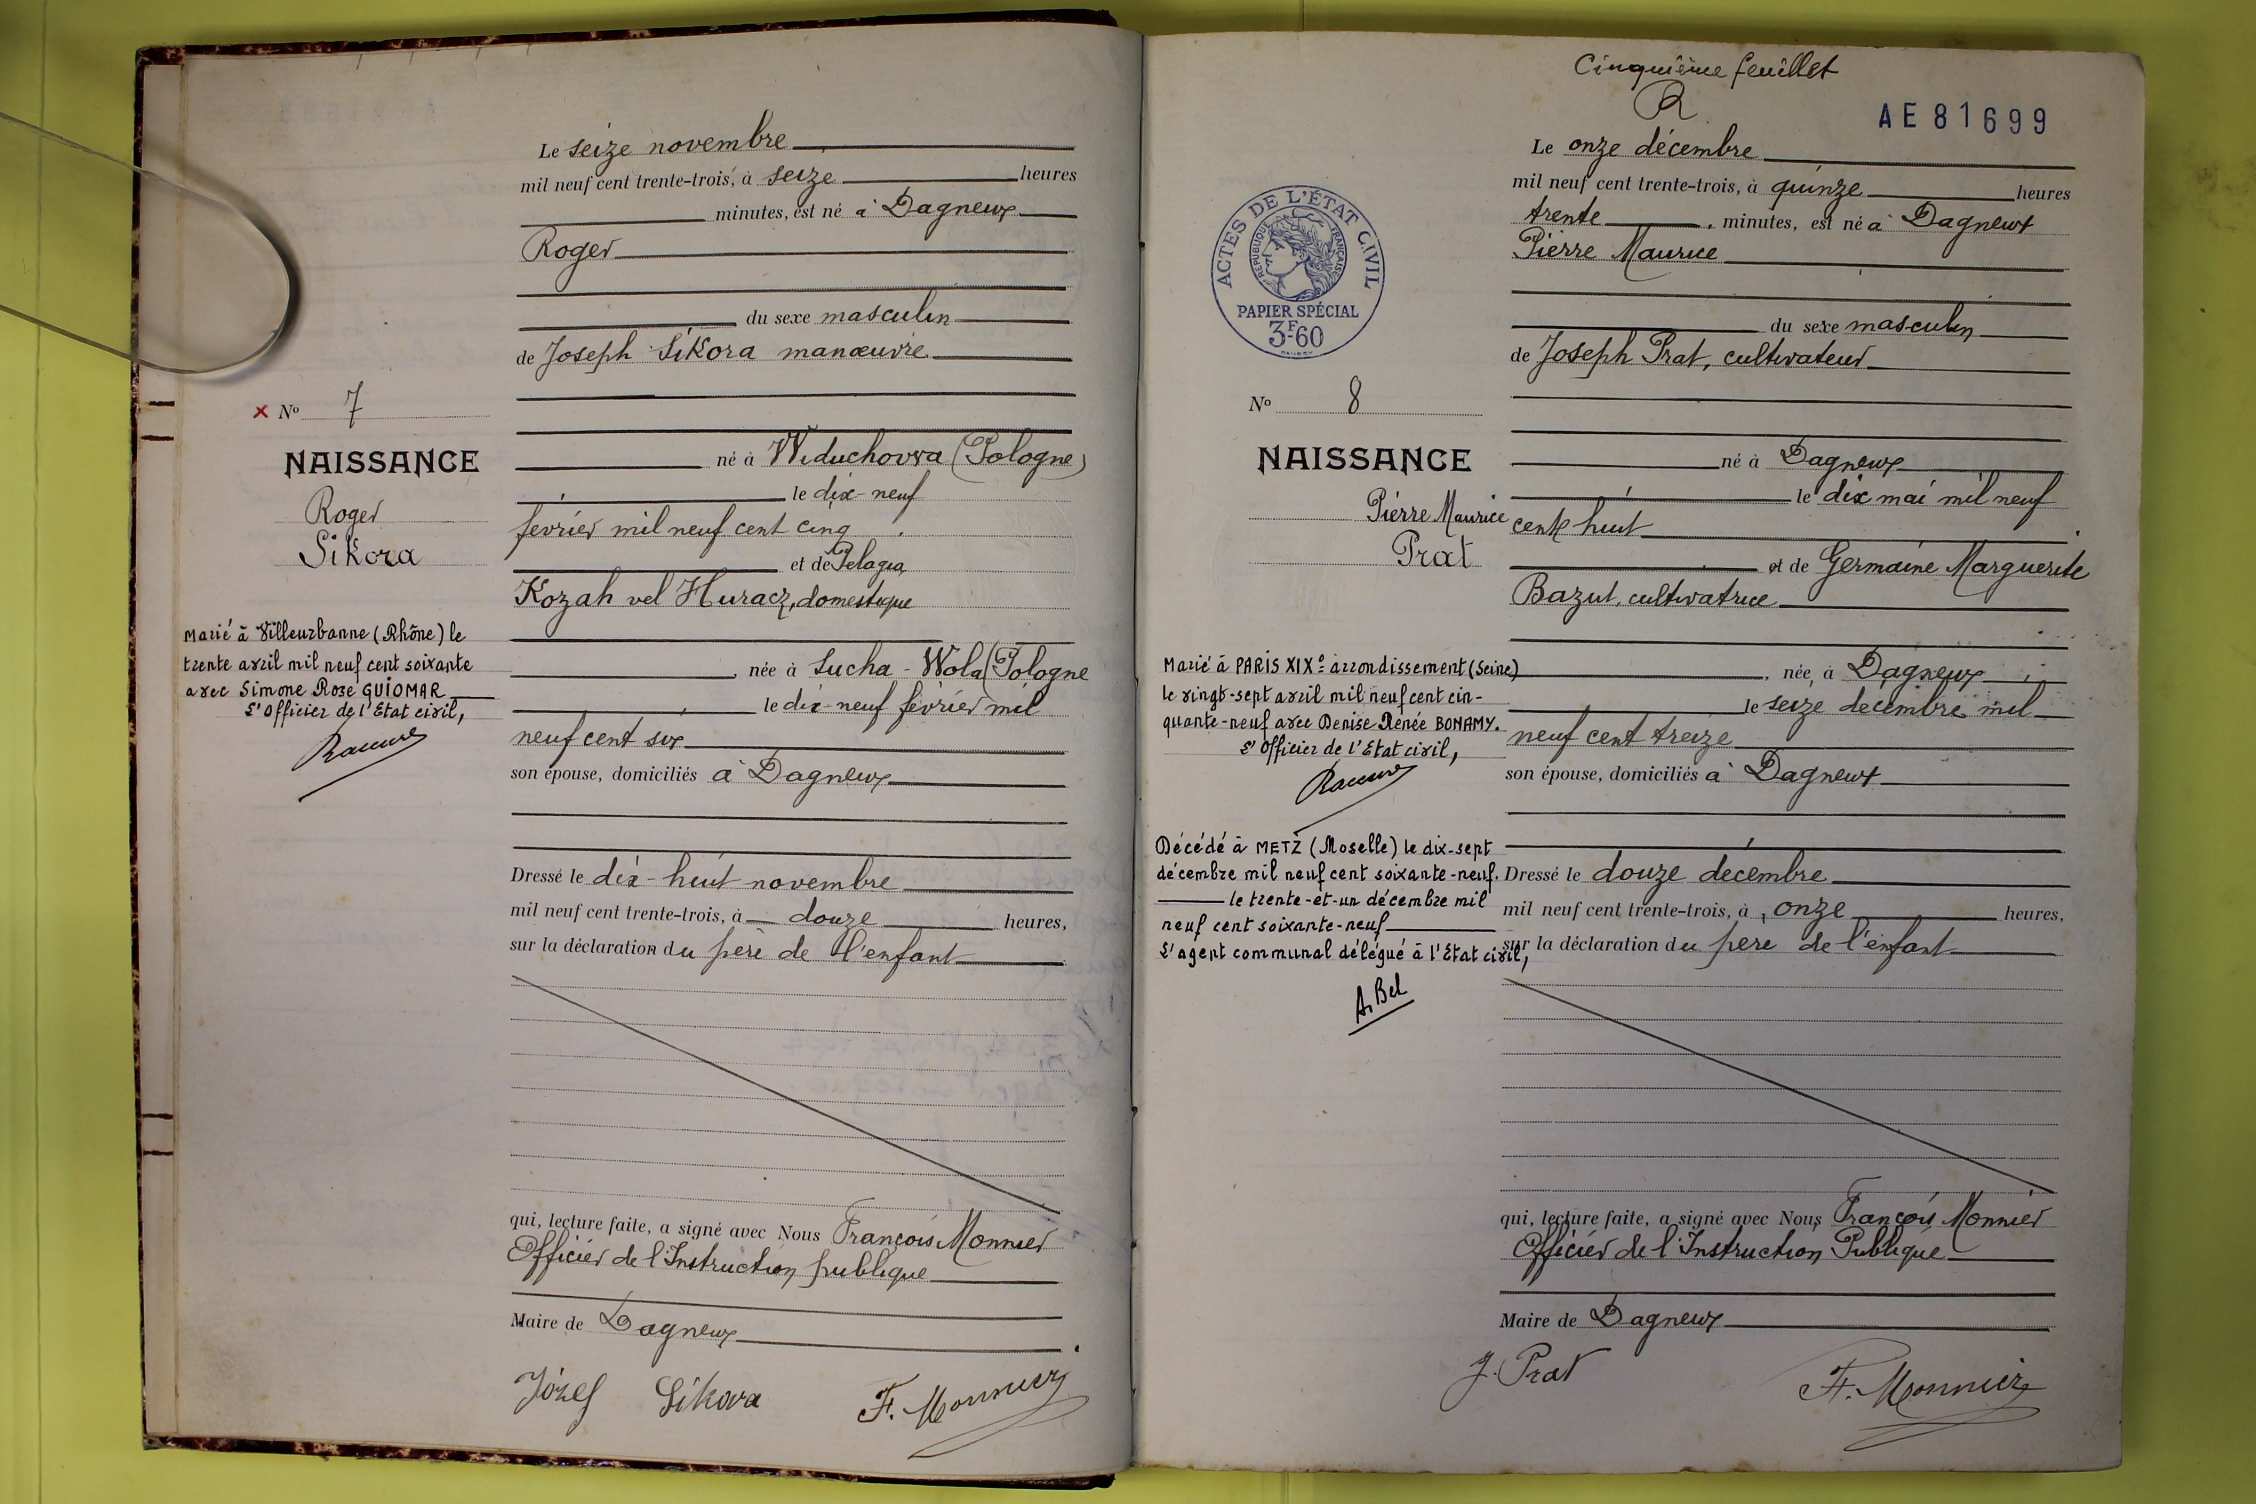 Le seize novembre
mil neuf cent trente-trois, à seize heures
minutes, est né à Dagneux
Roger
du sexe masculin
de Joseph Sikora manœuvre
× No 7
NAISSANCE
Roger
Sikora
né à Widuchowa (Pologne)
le dix-neuf
février mil neuf cent cinq
et de Pelagia
Kozah vel Huracz, domestique
née à Sucha-Wola (Pologne
le dix-neuf février mil
neuf cent six
son épouse, domiciliés à Dagneux
Marié à Villeurbanne (Rhône) le
trente avril mil neuf cent soixante
avec Simone Rose GUIOMAR
L'Officier de l'Etat civil,
Dressé le dix-huit novembre
mil neuf cent trente-trois, à douze heures,
sur la déclaration du père de l'enfant
qui, lecture faite, a signé avec Nous François Monnier
Officier de l'Instruction publique
Maire de Dagneux
Józef Sikora F. Monnier
Cinquième feuillet
AE81699
Le onze décembre
mil neuf cent trente-trois, à quinze heures
trente, minutes, est né à Dagneux
Pierre Maurice
du sexe masculin
de Joseph Prat, cultivateur
ACTES DE L'ÉTAT CIVIL
RÉPUBLIQUE FRANÇAISE
PAPIER SPÉCIAL
3F60
No 8
NAISSANCE
Pierre Maurice
Prat
né à Dagneux
le dix mai mil neuf
cent huit
et de Germaine Marguerite
Bazut, cultivatrice
, née, à Dagneux
le seize décembre mil
neuf cent treize
son épouse, domiciliés à Dagneux
Marié à PARIS XIXe arrondissement (Seine)
le vingt-sept avril mil neuf cent cin-
quante-neuf avec Denise Renée BONAMY.
L'Officier de l'Etat civil,
Décédé à METZ (Moselle) le dix-sept
décembre mil neuf cent soixante-neuf.
le trente-et-un décembre mil
neuf cent soixante-neuf
L'agent communal délégué à l'Etat civil,
A. Bel
Dressé le douze décembre
mil neuf cent trente-trois, à onze heures,
sur la déclaration du père de l'enfant
qui, lecture faite, a signé avec Nous François Monnier
Officier de l'Instruction Publique
Maire de Dagneux
J. Prat F. Monnier